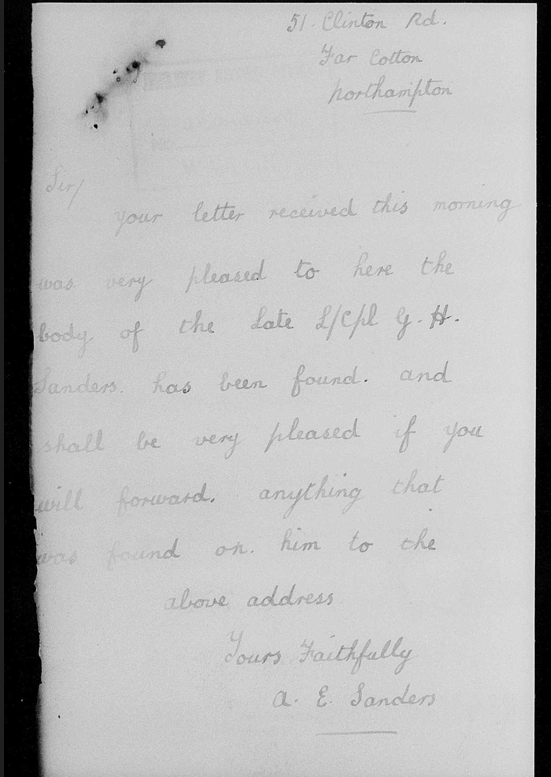 51 Clinton Rd.
Far Cotton
Northampton
Sir/
your letter received this morning
was very pleased to here the
body of the Late L/Cpl G. H.
Sanders. has been found. and
shall be very pleased if you
will forward. anything that
was found on. him to the
above address
Yours Faithfully
A. E. Sanders